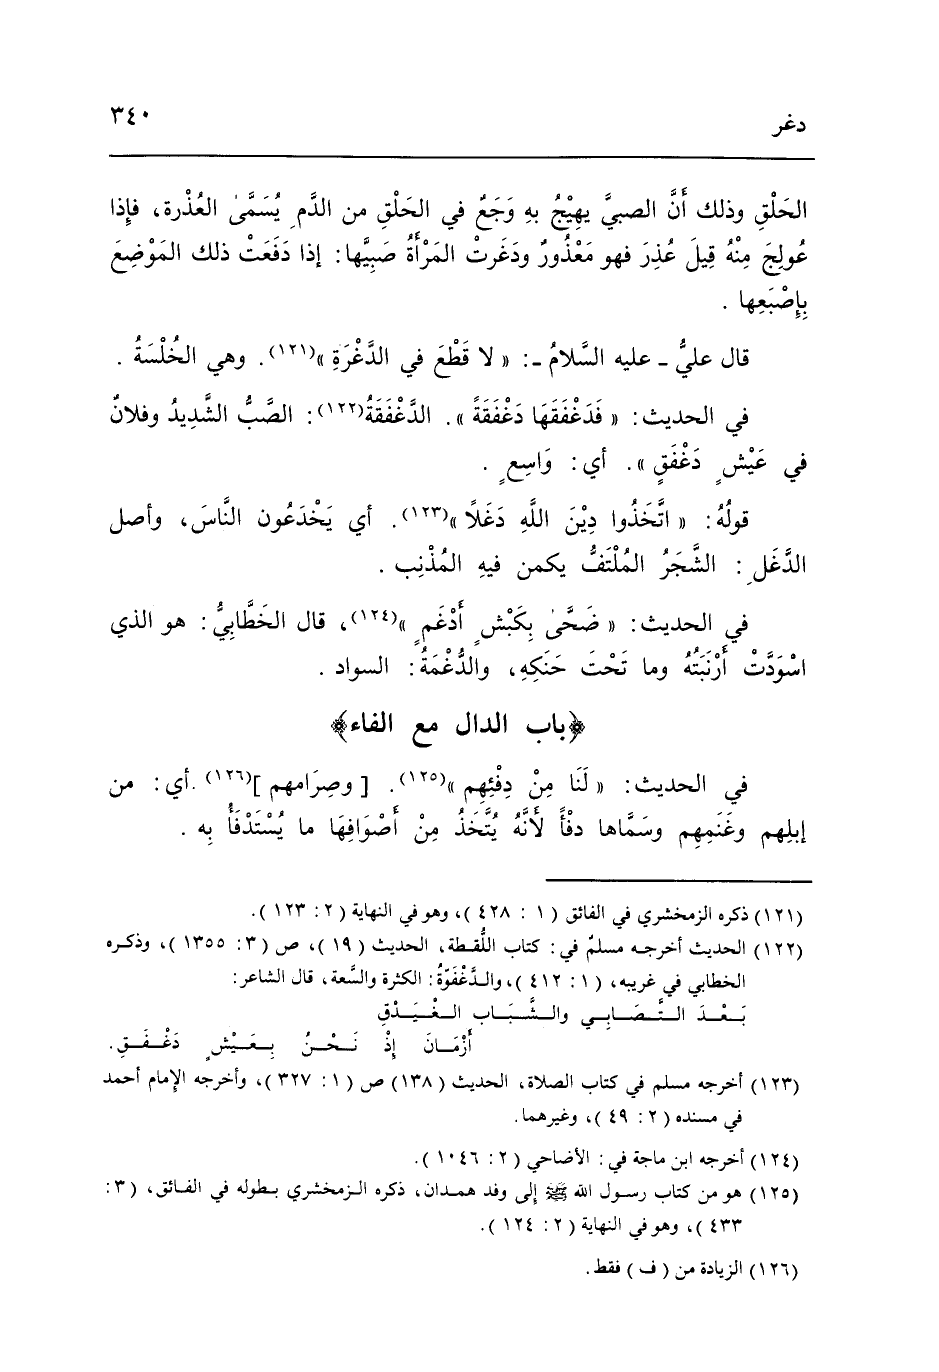 دغر
٣٤٠
الحَلْقِ وذلك أَنَّ الصبيَّ يهِيْجُ بهِ وَجَعٌ في الحَلْقِ من الدَّم يُسَمَّىٰ العُذْرة، فإِذا
عُولِجَ مِنْهُ قِيلَ عُذِرَ فهو مَعْذُورٌ ودَغَرتْ المَرْأَةُ صَبِيَّها: إذا دَفَعَتْ ذلك المَوْضِعَ
بِإِصْبَعِها .
قال عليُّ ـ عليه السَّلامُ ـ: « لا قَطْعَ في الدَّغْرَةِ »(١٢١). وهي الخُلْسَةُ .
في الحديث: « فَدَغْفَقَهَا دَغْفَقَةً ». الدَّغْفَقَةُ(١٢٢): الصَّبُّ الشَّدِيدُ وفلانٌ
في عَيْشٍ دَغْفَقٍ ». أي: وَاسِعٍ .
قولُهُ: « اتَّخَذُوا دِيْنَ اللَّهِ دَغَلًا »(١٢٣). أي يَخْدَعُون النَّاسَ، وأصل
الدَّغَلِ: الشَّجَرُ المُلْتَفُّ يكمن فيهِ المُذْنِب .
في الحديث: « ضَحَّىٰ بِكَبْشٍ أَدْغَمٍ »(١٢٤)، قال الخَطَّابِيُّ: هو الذي
اسْوَدَّتْ أَرْنَبَتُهُ وما تَحْتَ حَنَكِهِ، والدُّغْمَةُ: السواد .
﴿باب الدال مع الفاء﴾
في الحديث: « لَنَا مِنْ دِفْئِهِم »(١٢٥). [ وصِرَامهم ](١٢٦) .أي: من
إبلِهم وغَنَمِهم وسَمَّاها دفْأً لأَنَّهُ يُتَّخَذُ مِنْ أَصْوَافِهَا ما يُسْتَدْفَأُ به .
(١٢١) ذكره الزمخشري في الفائق ( ١ : ٤٢٨ )، وهو في النهاية ( ٢ : ١٢٣ ).
(١٢٢) الحديث أخرجه مسلمٌ في: كتاب اللُّقطة، الحديث ( ١٩ )، ص ( ٣: ١٣٥٥ )، وذكره
الخطابي في غريبه، ( ١ : ٤١٢ )،والدَّغْفَوّةُ: الكثرة والسَّعة، قال الشاعر:
بَعْدَ التَّصَابِي والشَّبَاب الغْيَدْقِ
أَزْمَانَ إِذْ نَحْنُ بِعَيْشٍ دَغْفَقِ.
(١٢٣) أخرجه مسلم في كتاب الصلاة، الحديث ( ١٣٨) ص ( ١ : ٣٢٧ )، وأخرجه الإمام أحمد
في مسنده ( ٢ : ٤٩ )، وغيرهما.
(١٢٤) أخرجه ابن ماجة في: الأضاحي ( ٢ : ١٠٤٦ ).
(١٢٥) هو من كتاب رسول الله ﷺ إلى وفد همدان، ذكره الزمخشري بطوله في الفائق، ( ٣ :
٤٣٣ )، وهو في النهاية ( ٢ : ١٢٤ ).
(١٢٦) الزيادة من ( ف ) فقط.